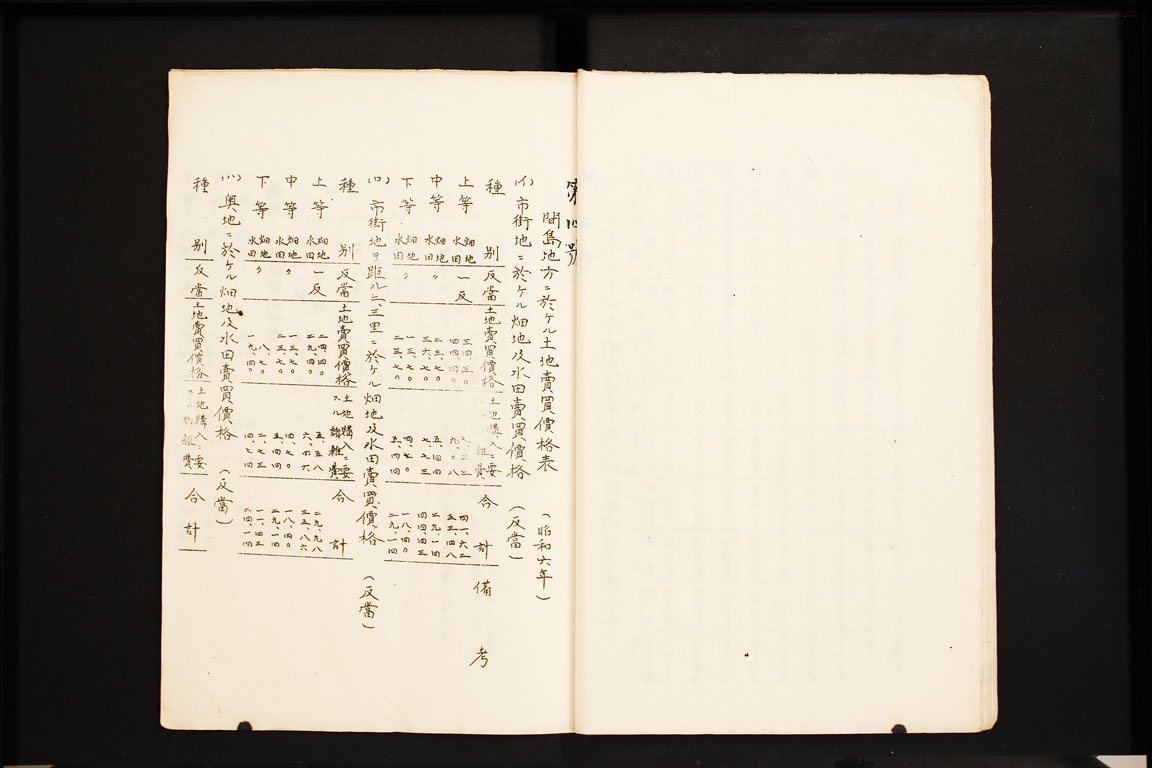 第四號
間島地方ニ於ケル土地賣買價格表（昭和六年）
(イ)市街地ニ於ケル畑地及水田賣買價格（反當）
種別 反當 土地賣買價格 土地購入ニ要スル諸雜費 合計 備考
上等 畑地 一反 三四、三〇 八、三二 四一、六二
水田 四四、四〇 九、〇八 五三、四八
中等 畑地 〃 二三、七〇 五、四四 二九、一四
水田 三六、七〇 七、七三 四四、四三
下等 畑地 〃 一三、七〇 四、七〇 一八、四〇
水田 二三、七〇 五、四四 二九、一四
(ロ)市街地ヲ距ル二、三里ニ於ケル畑地及水田賣買價格（反當）
種別 反當 土地賣買價格 土地購入ニ要スル諸雜費 合計
上等 畑地 一反 二四、四〇 五、五八 二九、九八
水田 二九、四〇 六、四六 三五、八六
中等 畑地 〃 一三、七〇 四、七〇 一八、四〇
水田 二三、七〇 五、四四 二九、一四
下等 畑地 〃 八、七〇 二、七三 一一、四三
水田 一九、四〇 四、七四 二四、一四
(ハ)奥地ニ於ケル畑地及水田賣買價格（反當）
種別 反當 土地賣買價格 土地購入ニ要スル諸雜費 合計